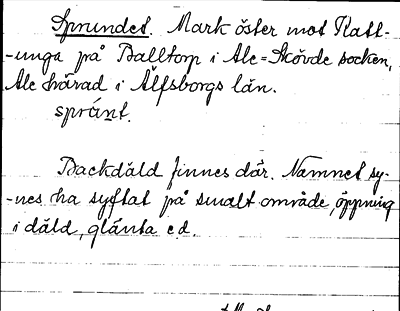 Sprundet. Mark öster mot Katt-
-unga på Balltorp i Ale=Skövde socken,
Ale härad i Älfsborgs län.
språnt.
Backdäld finnes där. Namnet sy-
-nes ha syftat på smalt område, öppning
i däld, glänta e.d.